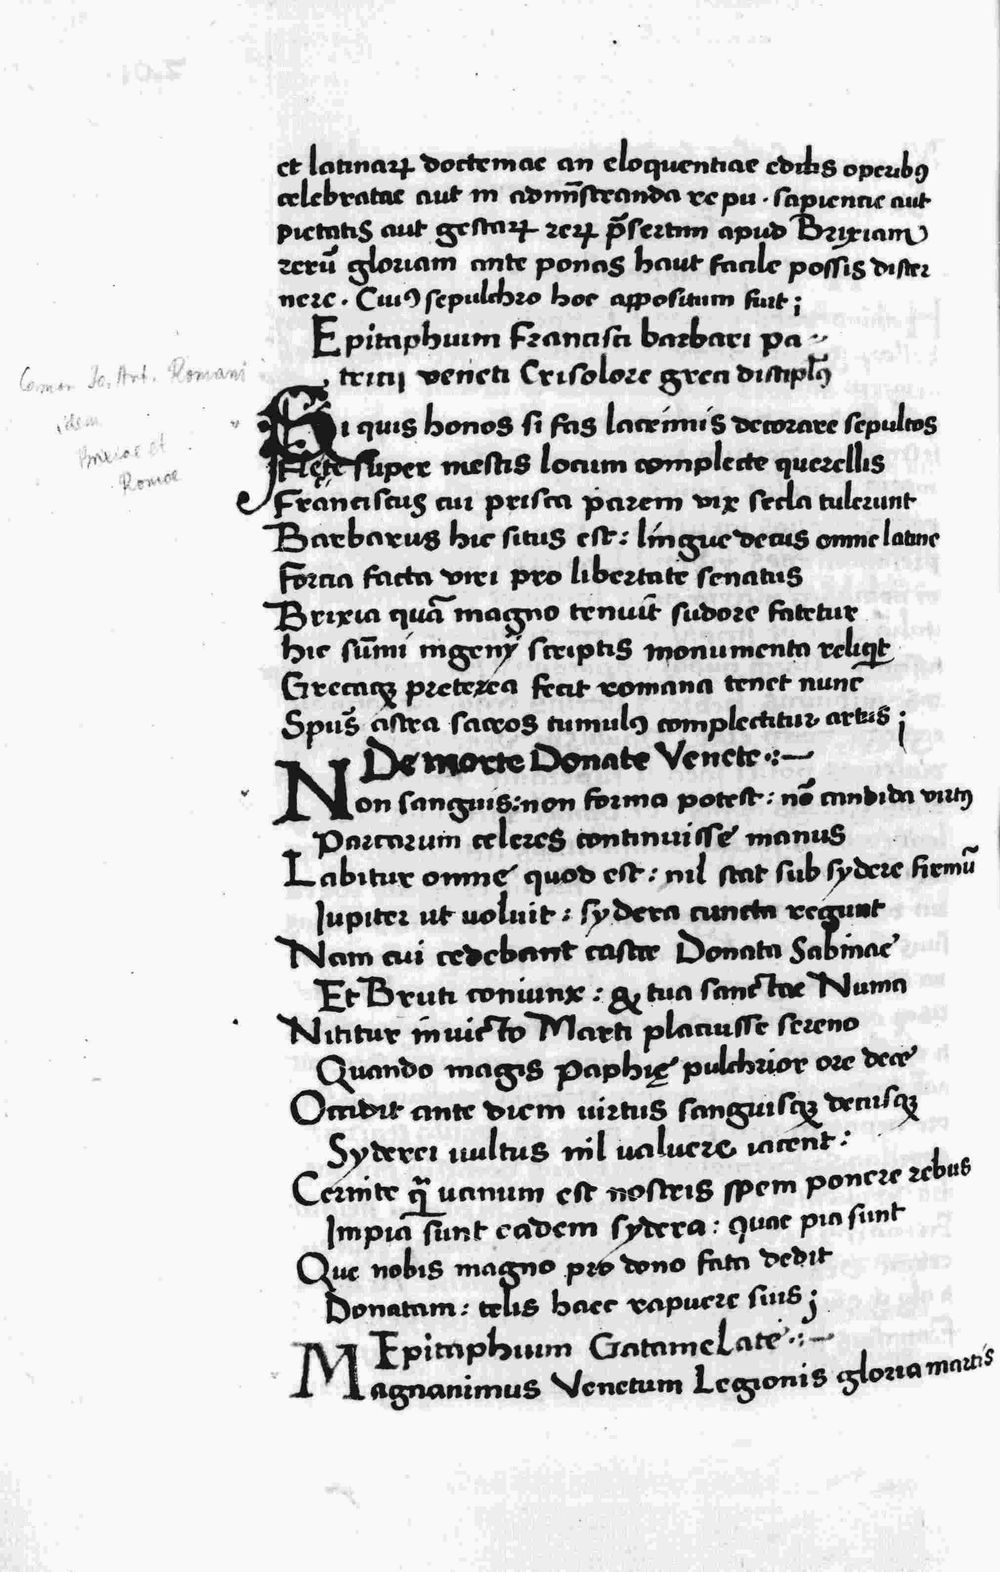 et latinaꝝ doctrinae an eloquentiae editis operibꝯ
celebratae aut in admĩstranda re pu. sapientie aut
pietatis aut gestaꝝ reꝝ p̃sertim apud Brixiam
rerũ gloriam ante ponas haut facile possis discer
nere. Cuiꝯ sepulchro hoc appositum fuit;
Epitaphium Francisci barbari pa
tricij veneti Crisolore greci discipl̃ꝯ
Si quis honos si fas lacrimis decorare sepultos
Flete super mestis locum complecte querellis
Franciscus cui prisca parem vix secla tulerunt
Barbarus hic situs est: lingue decus omne latine
Forcia facta viri pro libertate senatus
Brixia quã magno tenuit sudore fatetur
hic sũmi ingenij scriptis monumenta reliqit
Grecaqꝫ preterea fecit romana tenet nunc
Spũs astra sacros tumulꝯ complectitur artus;
De morte Donate Venete
Non sanguis: non forma potest: nõ candida virtꝯ
Parcarum celeres continuisse manus
Labitur omne quod est: nil stat sub sydere firmũ
Iupiter ut voluit: sydera cuncta regunt
Nam cui cedebant caste Donata Sabinae
Et Bruti coniunx: & tua sanctae Numa
Nititur invicto Marti placuisse sereno
Quando magis Paphię pulchrior ore deae
Occidit ante diem virtus sanguisqꝫ decusqꝫ
Syderei vultus nil valuere iacent:
Cernite q̃ vanum est nostris spem ponere rebus
Impia sunt eadem sydera: quae pia sunt
Que nobis magno pro dono fata dedit
Donatam: telis haec rapuere suis;
Epitaphium Gatamelate
Magnanimus Venetum Legionis gloria martis
Jo. Ant. Romani
idem
Brixiae et
Romae